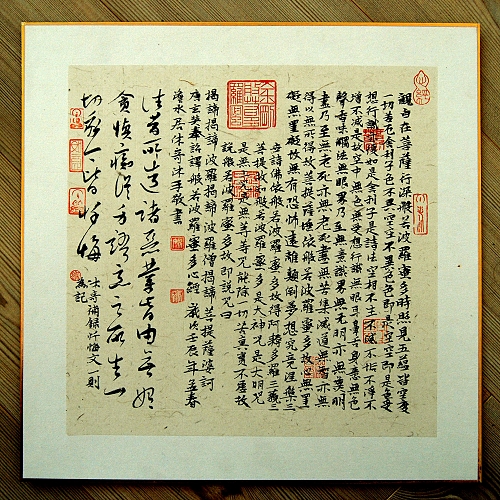 觀自在菩薩行深般若波羅蜜多時照見五蘊皆空度
一切苦厄舍利子色不異空空不異色色即是空空即是色受
想行識亦復如是舍利子是諸法空相不生不滅不垢不淨不
增不減是故空中無色無受想行識無眼耳鼻舌身意無色
聲香味觸法無眼界乃至無意識界無無明亦無無明
盡乃至無老死亦無老死盡無苦集滅道無智亦無
得以無所得故菩提薩埵依般若波羅蜜多故心無罣
礙無罣礙故無有恐怖遠離顛倒夢想究竟涅槃三
世諸佛依般若波羅蜜多故得阿耨多羅三藐三
菩提故知般若波羅蜜多是大神咒是大明咒
是無上咒是無等等咒能除一切苦真實不虛故
說般若波羅蜜多故即說咒曰
揭諦揭諦波羅揭諦波羅僧揭諦菩提薩婆訶
唐玄奘詔譯般若波羅蜜多心經 歲次壬辰年孟春
水居沐寺沐手敬書
往昔所造諸惡業皆由無始
貪瞋癡從身語意之所生一
切我今皆懺悔
沐寺補錄懺悔文一則
為記